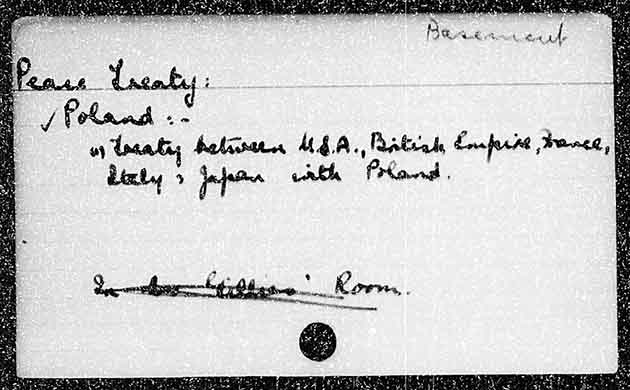 Basement
Peace Treaty:
✓ Poland :-
(1) Treaty between U.S.A., British Empire, France,
Italy & Japan with Poland.
In Room.